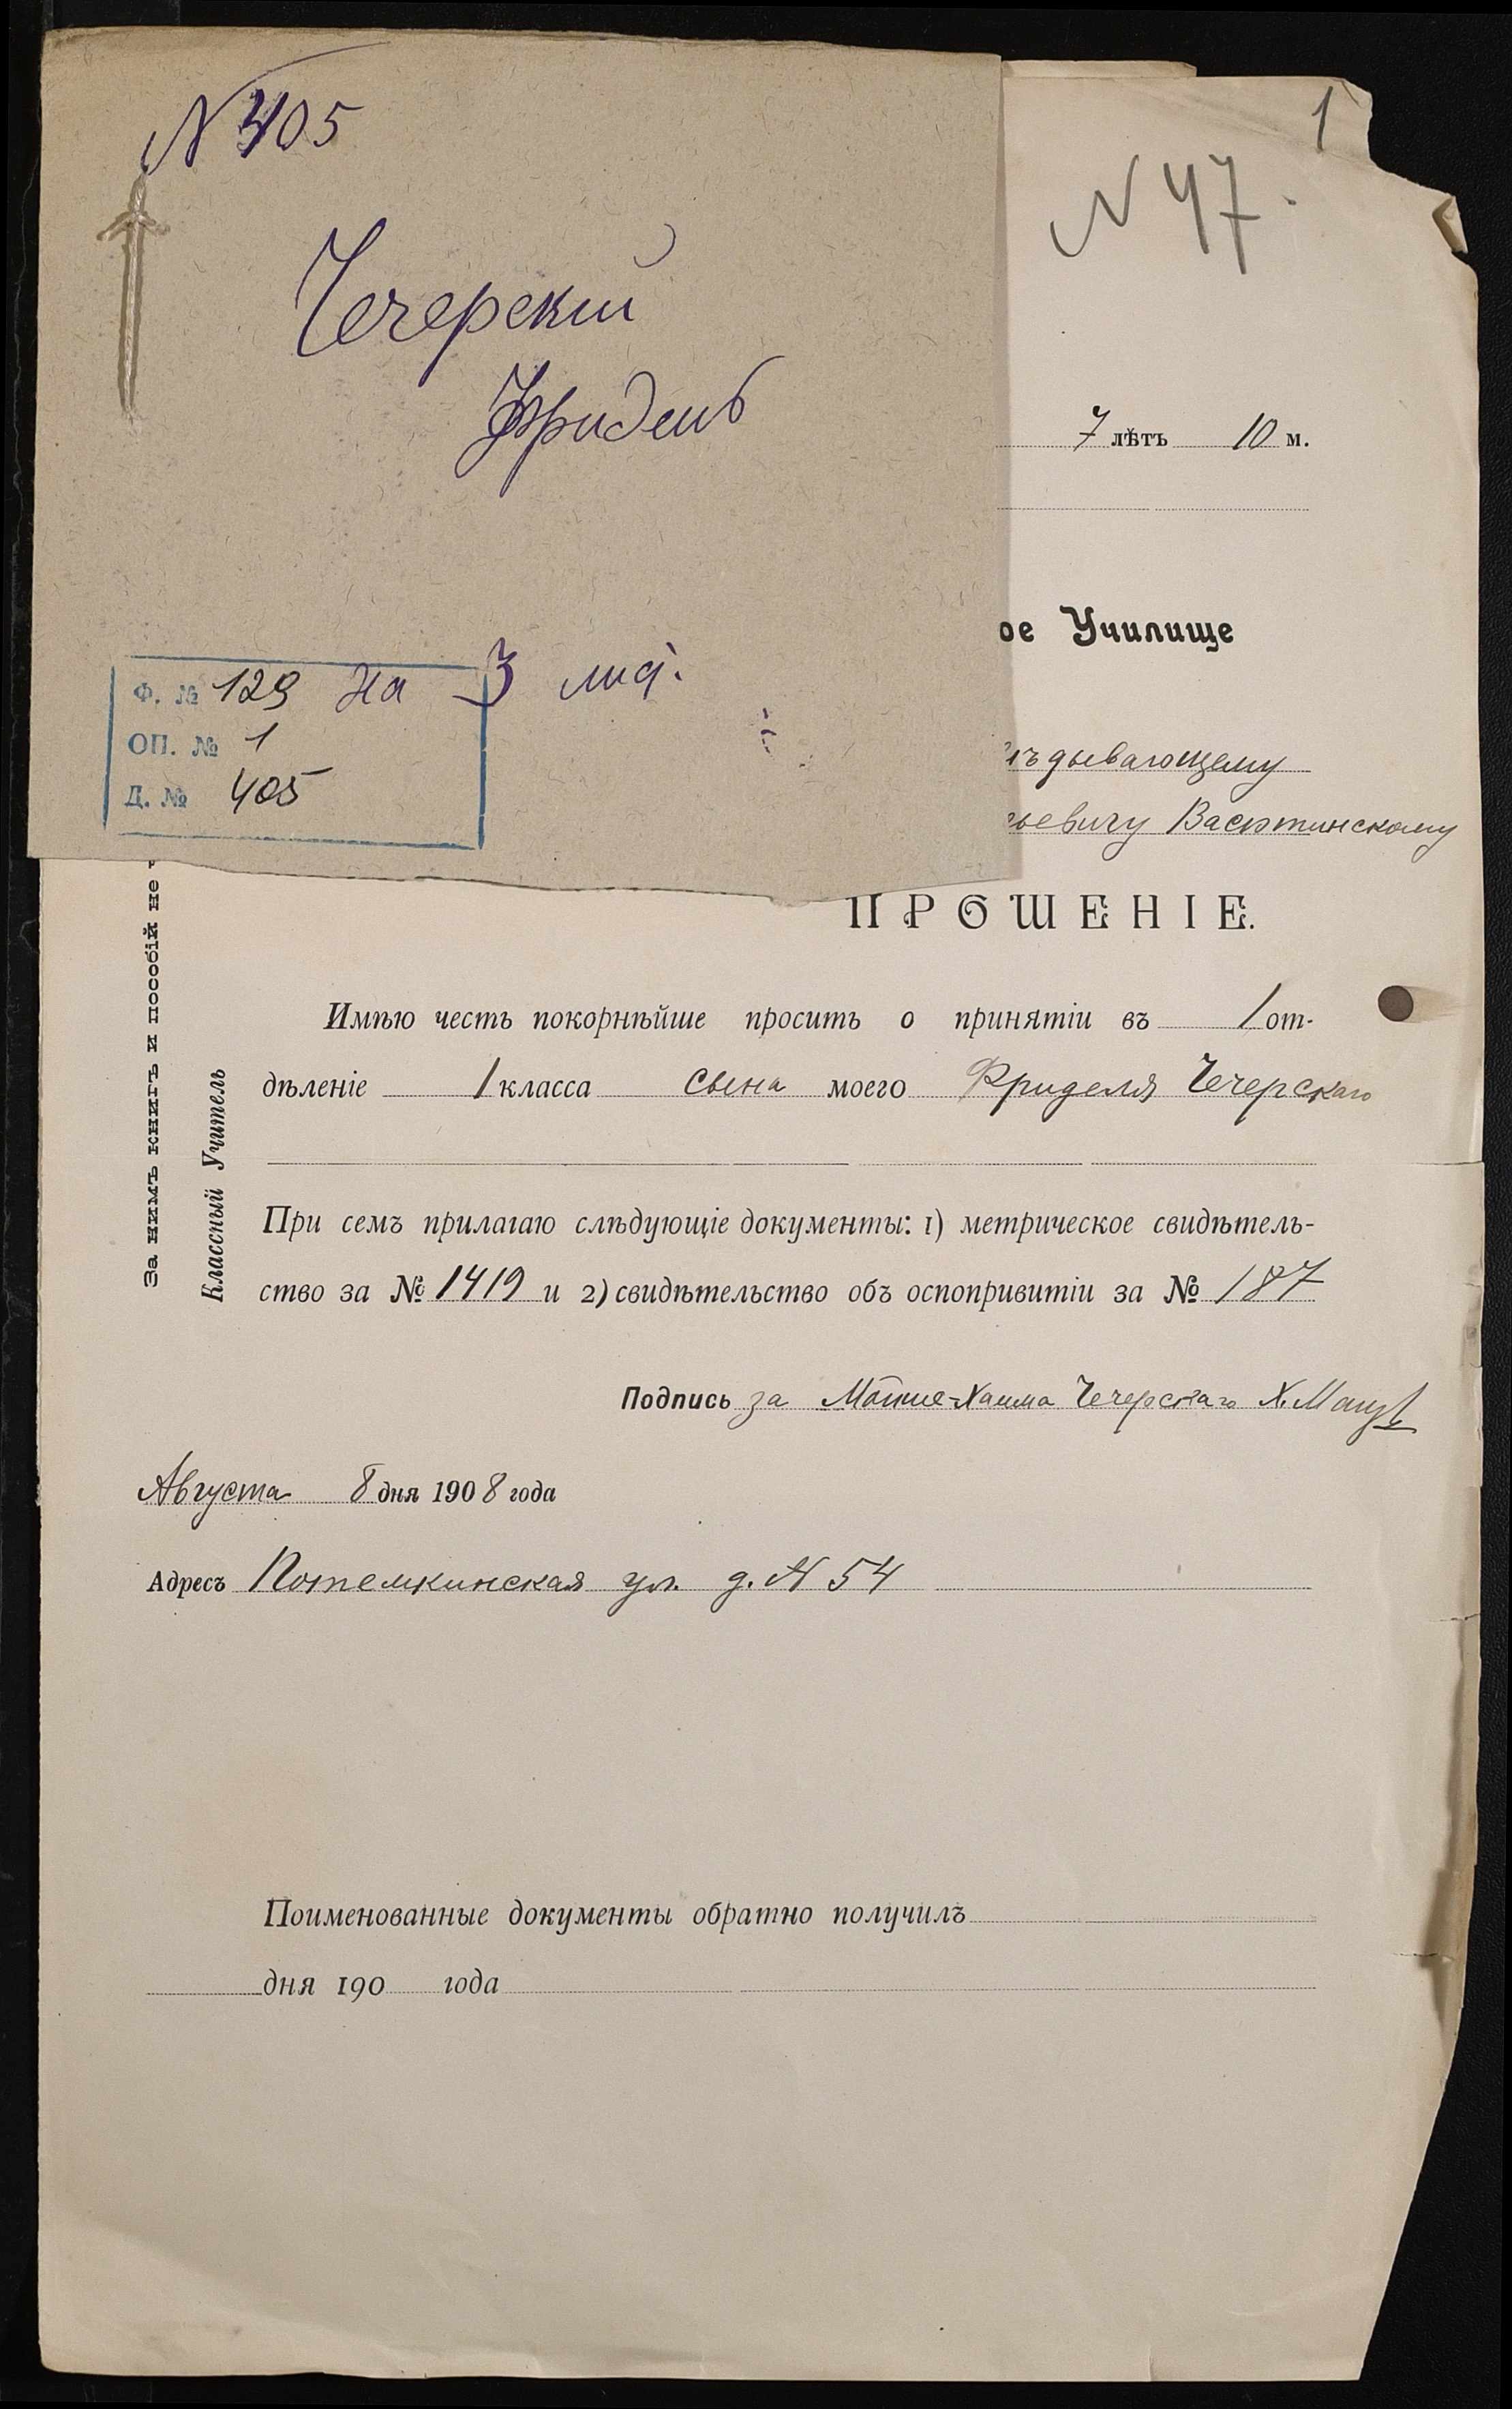 N 405
Чечерскій
Фридель
Ф. № 129 на 3 лид.
ОП. № 1
Д. № 405
1
N 47.
7 лѣтъ 10 м.
ое Училище
дывающему
ьевичу Васютинскому
ПРОШЕНІЕ.
Имѣю честь покорнѣйше просить о принятіи въ 1 от-
дѣленіе 1 класса сына моего Фриделя Чечерскаго
При семъ прилагаю слѣдующіе документы: 1) метрическое свидѣтель-
ство за № 1419 и 2) свидѣтельство объ оспопривитіи за № 187
Подпись за Мотше-Хаима Чечерскаго Х.
Августа 8 дня 1908 года
Адресъ Потемкинская ул. д. N 54
Поименованные документы обратно получилъ
дня 190 года
За нимъ книгъ и пособій не
Классный Учитель